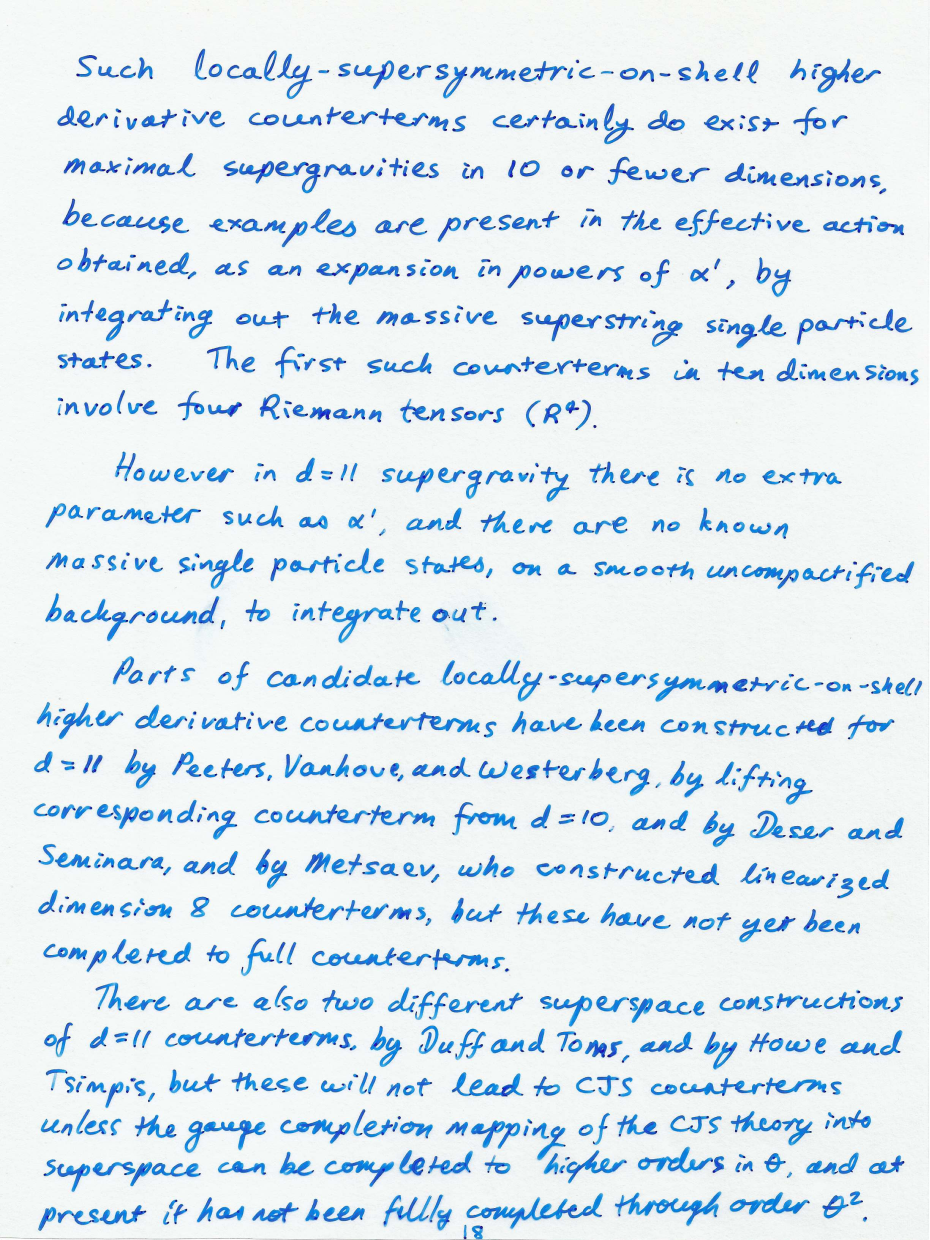 Such locally-supersymmetric-on-shell higher
derivative counterterms certainly do exist for
maximal supergravities in 10 or fewer dimensions,
because examples are present in the effective action
obtained, as an expansion in powers of α', by
integrating out the massive superstring single particle
states. The first such counterterms in ten dimensions
involve four Riemann tensors (R⁴).
However in d=11 supergravity there is no extra
parameter such as α', and there are no known
massive single particle states, on a smooth uncompactified
background, to integrate out.
Parts of candidate locally-supersymmetric-on-shell
higher derivative counterterms have been constructed for
d=11 by Peeters, Vanhove, and Westerberg, by lifting
corresponding counterterm from d=10, and by Deser and
Seminara, and by Metsaev, who constructed linearized
dimension 8 counterterms, but these have not yet been
completed to full counterterms.
There are also two different superspace constructions
of d=11 counterterms, by Duff and Toms, and by Howe and
Tsimpis, but these will not lead to CJS counterterms
unless the gauge completion mapping of the CJS theory into
superspace can be completed to higher orders in θ, and at
present it has not been fully completed through order θ².
18